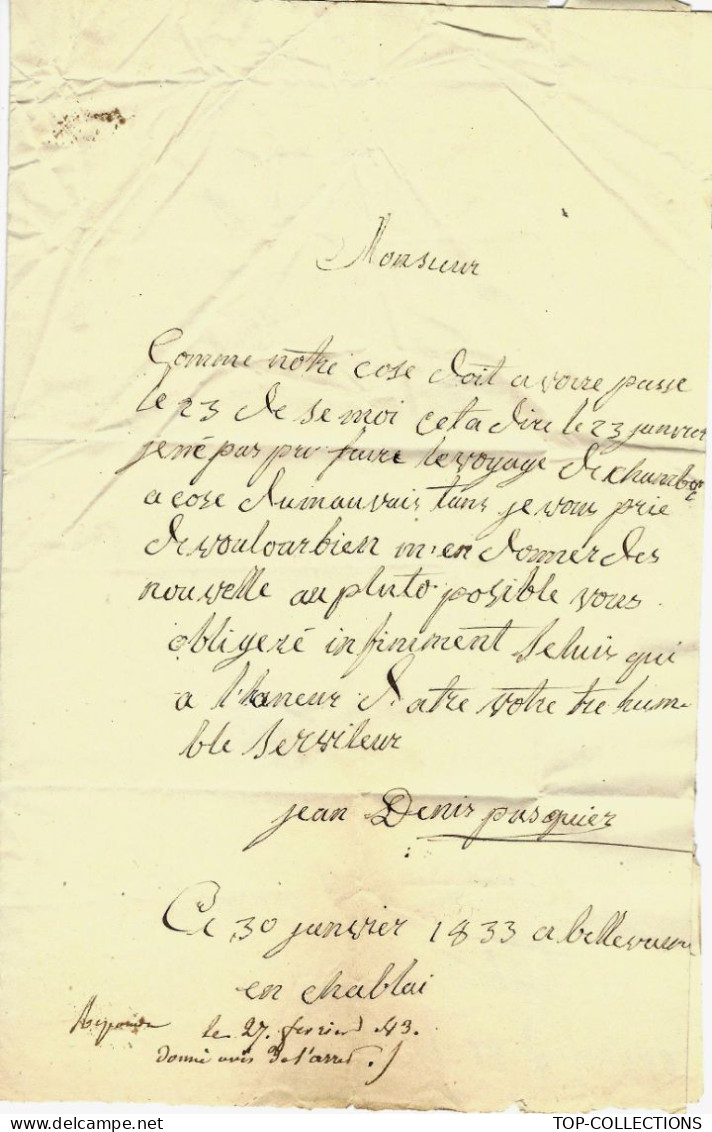 Monsieur
Comme notre cose doit avoire passe
le 23 de se moi ceta dire le 23 janvier
je né pas pu faire le voyage de chambe
a cose du mauvais tans je vous prie
de vouloar bien m'en donner des
nouvelle au pluto posible vous
obligeré infiniment seluis qui
a l'honeur d'atre votre tre hum-
ble serviteur
jean Denis pasquier
Ce 30 janvier 1833 a bellevau
en chablai
Repondu le 27. fevrier 43.
donné avis de l'arret.
TOP-COLLECTIONS